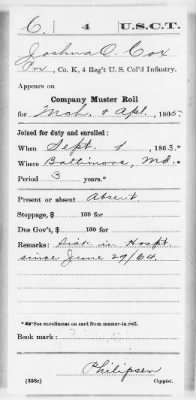 C. | 4 | U.S.C.T.
Joshua O. Cox
Pvt., Co. K, 4 Reg't U. S. Col'd Infantry.
Appears on
Company Muster Roll
for Mch. & Apl., 1865.
Joined for duty and enrolled:
When Sept. 1, 1863.*
Where Baltimore, Md.
Period 3 years.*
Present or absent Absent.
Stoppage, $ 100 for
Due Gov't, $ 100 for
Remarks: Sick in Hospt.
since June 29/64.
*See enrollment on card from muster-in roll.
Book mark:
Philipsen
(358c) Copyist.